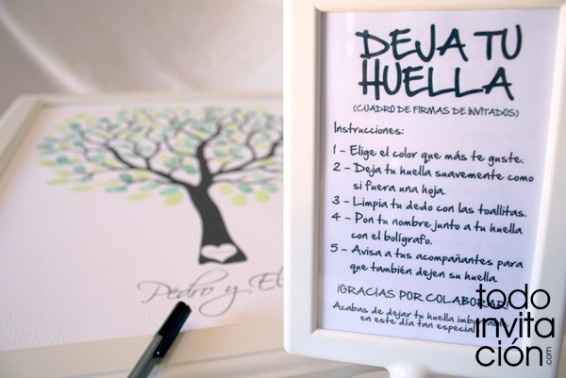 DEJA TU
HUELLA
(CUADRO DE FIRMAS DE INVITADOS)
Instrucciones:
1 - Elige el color que más te guste.
2 - Deja tu huella suavemente como
si fuera una hoja.
3 - Limpia tu dedo con las toallitas.
4 - Pon tu nombre junto a tu huella
con el bolígrafo.
5 - Avisa a tus acompañantes para
que también dejen su huella.
¡GRACIAS POR
Acabas de dejar tu huella
en este día tan especial
Pedro y
todo
invita
ción.com